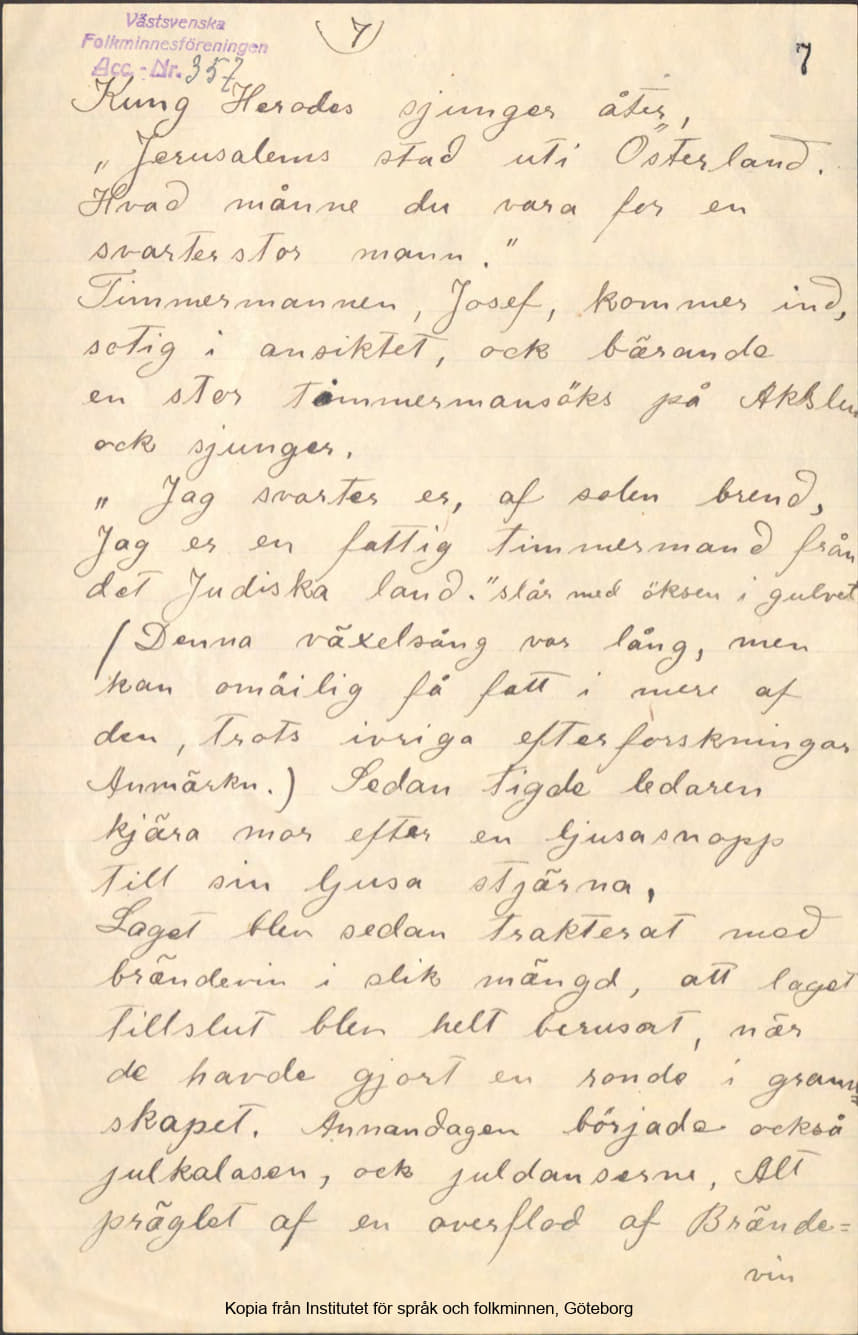 Västsvenska
Folkminnesföreningen
Acc.-Nr. 357
7
7
Kung Herodes sjunger åter,
„Jerusalems stad uti Österland.
Hvad månne du vara for en
svarterstor mann.”
Timmermannen, Josef, kommer ind,
sotig i ansiktet, ock bärande
en stor timmermansöks på Akslen
ock sjunger.
„Jag svarter er, af solen brend,
Jag er en fattig timmermand från
det Judiska land.” slår med öksen i gulvet
(Denna växelsång var lång, men
kan omöilig få fatt i mere af
den, trots ivriga efterforskningar
Anmärkn.) Sedan tigde ledaren
kjära mor efter en ljusasnopp
till sin ljusa stjärna,
Laget blev sedan trakterat med
brändevin i slik mängd, att laget
tillslut blev helt berusat, når
de havde gjort en ronde i grann=
skapet. Annandagen började också
julkalasen, ock juldanserne, Alt
präglet af en overflod af Brände=
vin
Kopia från Institutet för språk och folkminnen, Göteborg